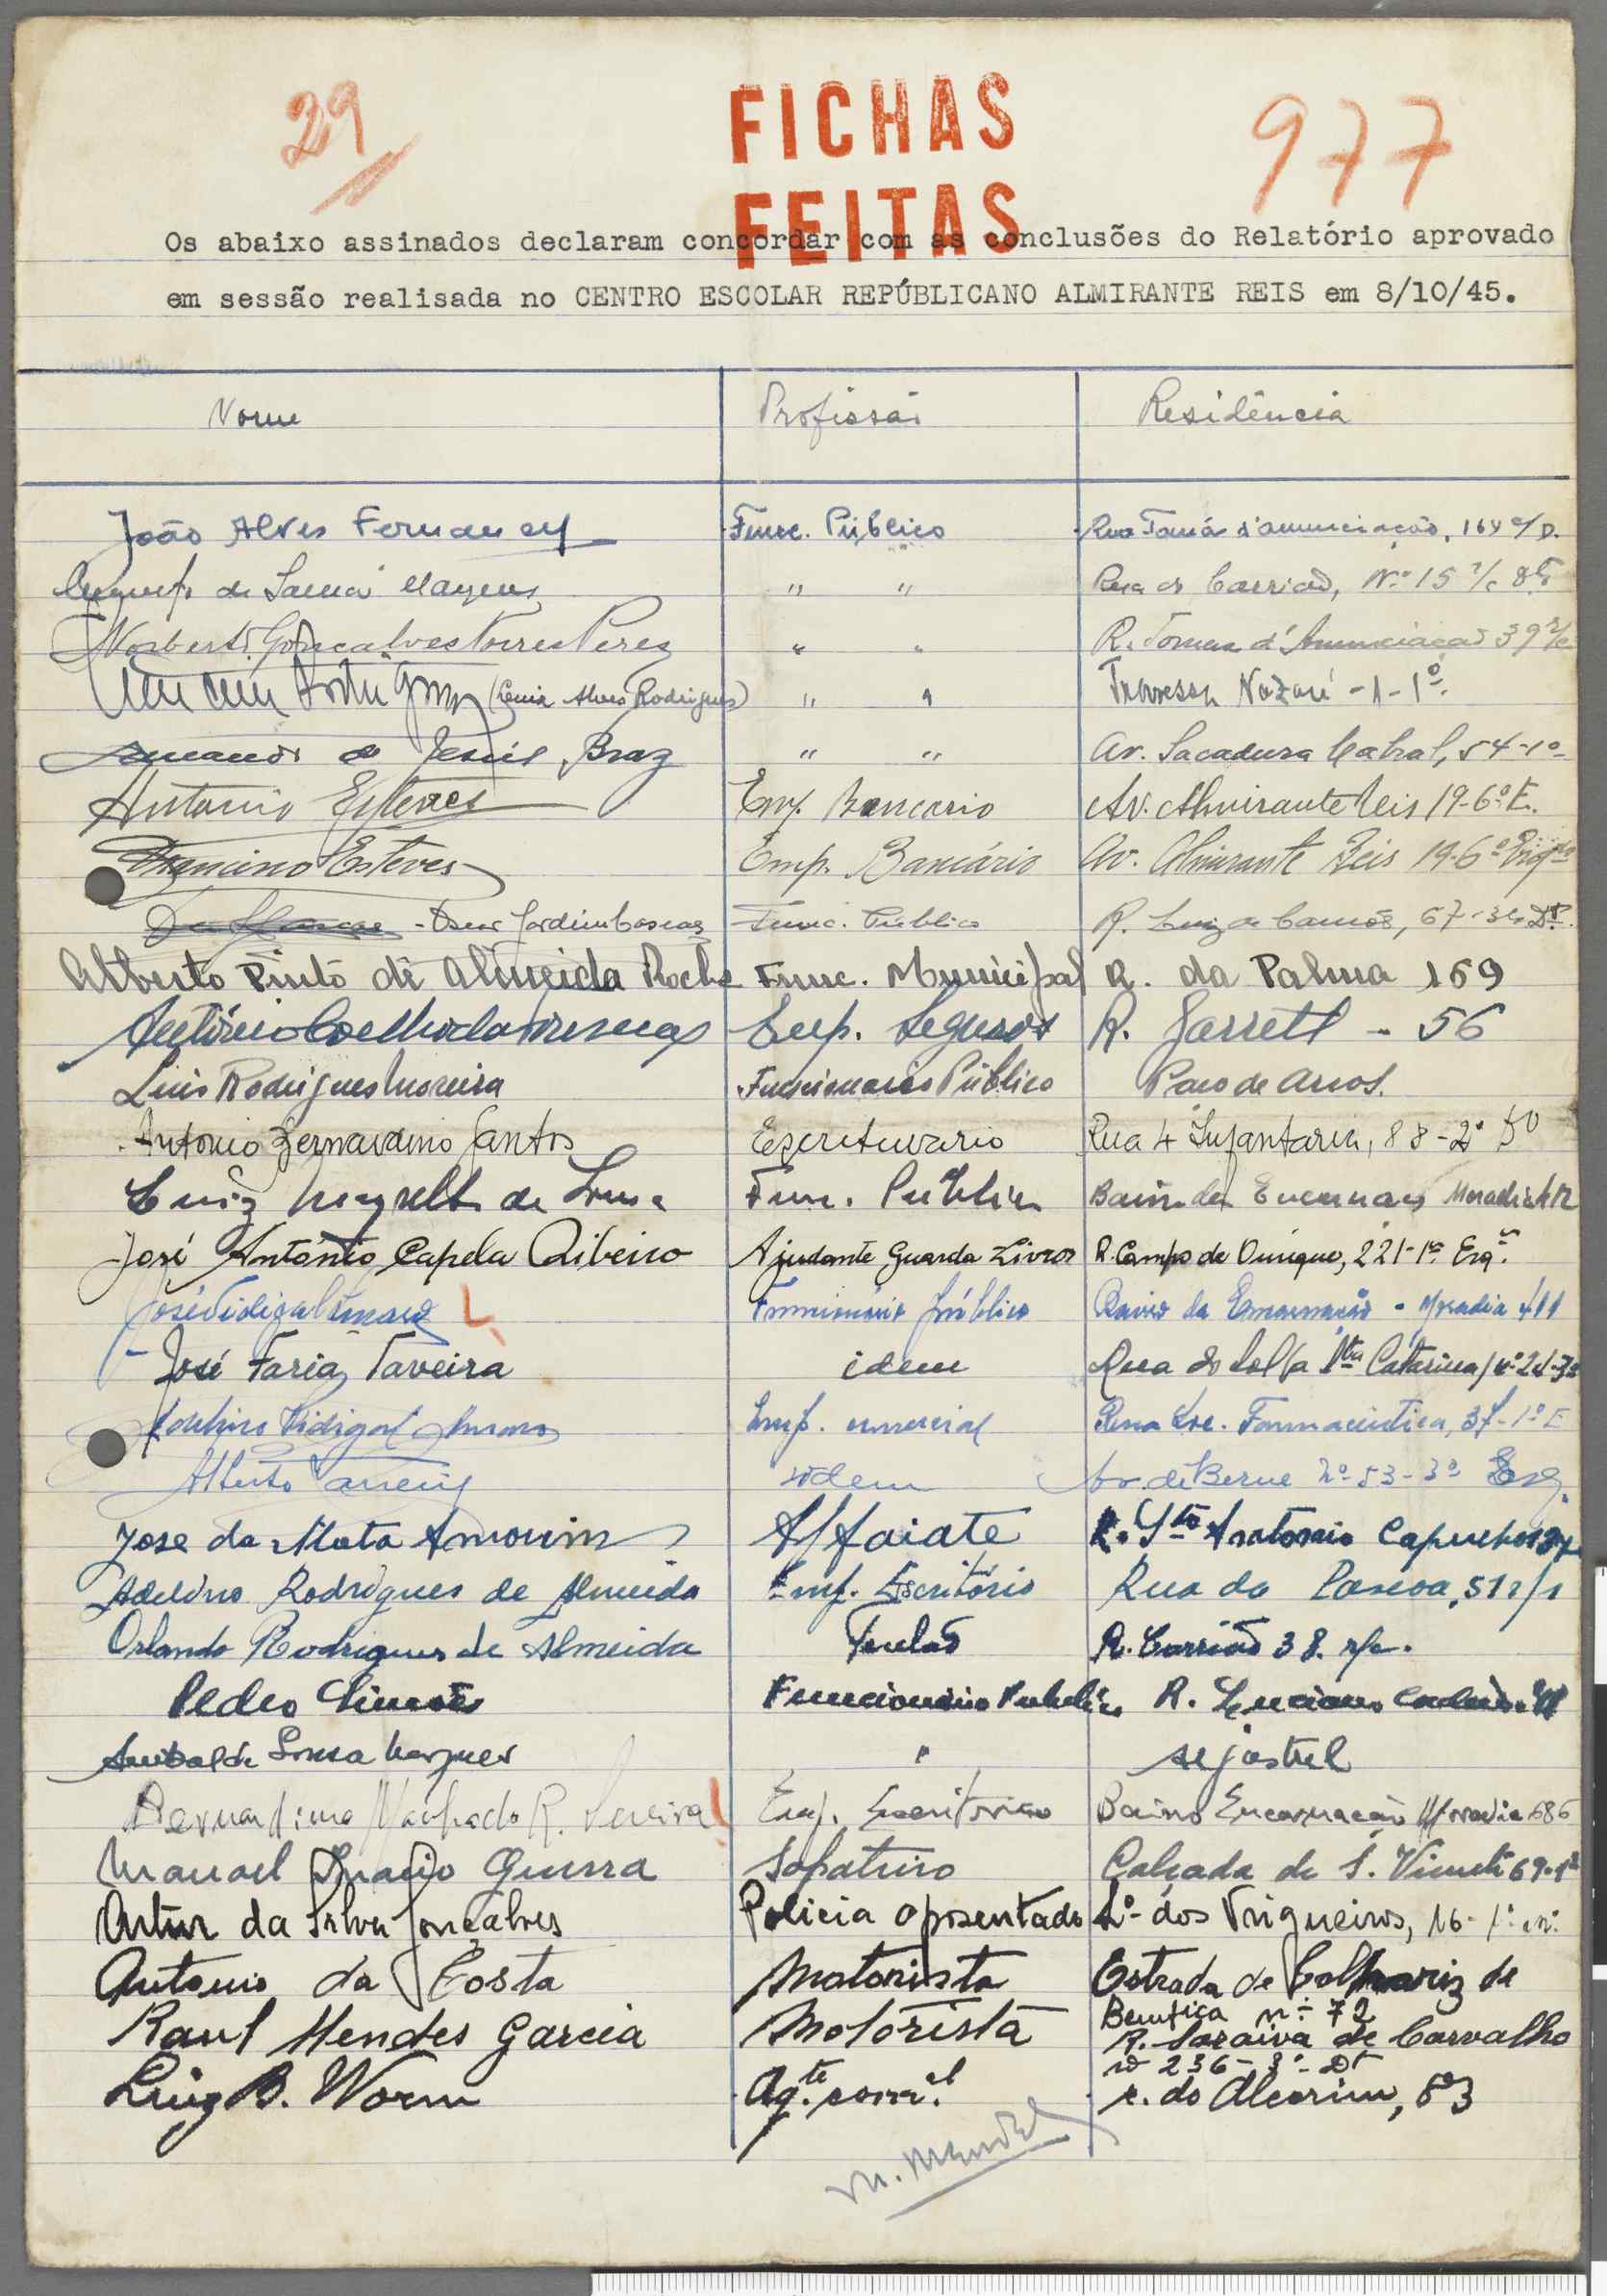 29
FICHAS
977
FEITAS
Os abaixo assinados declaram concordar com as conclusões do Relatório aprovado
em sessão realisada no CENTRO ESCOLAR REPÚBLICANO ALMIRANTE REIS em 8/10/45.
Nome Profissão Residência
João Alves Fernandes Func. Público Rua Tomás d'anunciação, 164 c/D.
de Rua do Carrião, Nº 15
Norberto Gonçalves Torres Peres " " R. Tomas d'Anunciação 39 r/c
(Luiz Alves Rodrigues) " " Travessa Nazaré - 1 - 1º
Armando de Jesus Braz " " Av. Sacadura Cabral, 54-1º
Antonio Esteves Emp. Bancario Av. Almirante Reis 19-6º E.
Francisco Esteves Emp. Bancário Av. Almirante Reis 19-6º Esqº
Func. Publico R. Luiz de Camões, 67-3º Dt.
Alberto Pinto de Almeida Rocha Func. Municipal R. da Palma 169
António Coelho da Emp. Seguros R. Garrett - 56
Luis Rodrigues Moreira Funcionario Público Paço de Arcos.
Antonio Bernardino Santos Escriturario Rua 4 Infantaria, 88-2º Dº
Luiz de Func. Publico
José António Capela Ribeiro Ajudante Guarda Livros R. Campo de Ourique, 221-1º Esqº
José Vidigal Amaro L Funcionário público Bairro da Encarnação - Moradia 411
José Faria Taveira idem Rua do Sol (a Sta Catarina)
Vidigal Amaro Emp. comercial Rua Soc. Farmaceutica, 37-1º E
Alberto idem Av. de Berne Nº 53-3º Esq.
Jose da Mata Amorim Alfaiate R. Sto Antonio Capuchos
Adelino Rodrigues de Almeida Emp. Escritório Rua da Pascoa, 51 r/c
Orlando Rodrigues de Almeida R. Carrião 38. r/c.
Pedro Simões Funcionário Publico R. Luciano Cordeiro
Anibal de Sousa Marques "
Bernardino Machado R. Pereira Emp. Escritorio Bairro Encarnação Moradia 686
Manoel Inacio Guerra Sapateiro Calçada de S. Vicente 69-1º
Artur da Silva Gonçalves Policia aposentado Lº dos Trigueiros, 16-1º
Antonio da Costa Motorista Estrada de Calhariz de
Benfica nº 72
Raul Mendes Garcia Motorista R. Saraiva de Carvalho
nº 236-3º Dt
Luiz B. Worm Agte. com.el r. do Alecrim, 83
M. Mendes